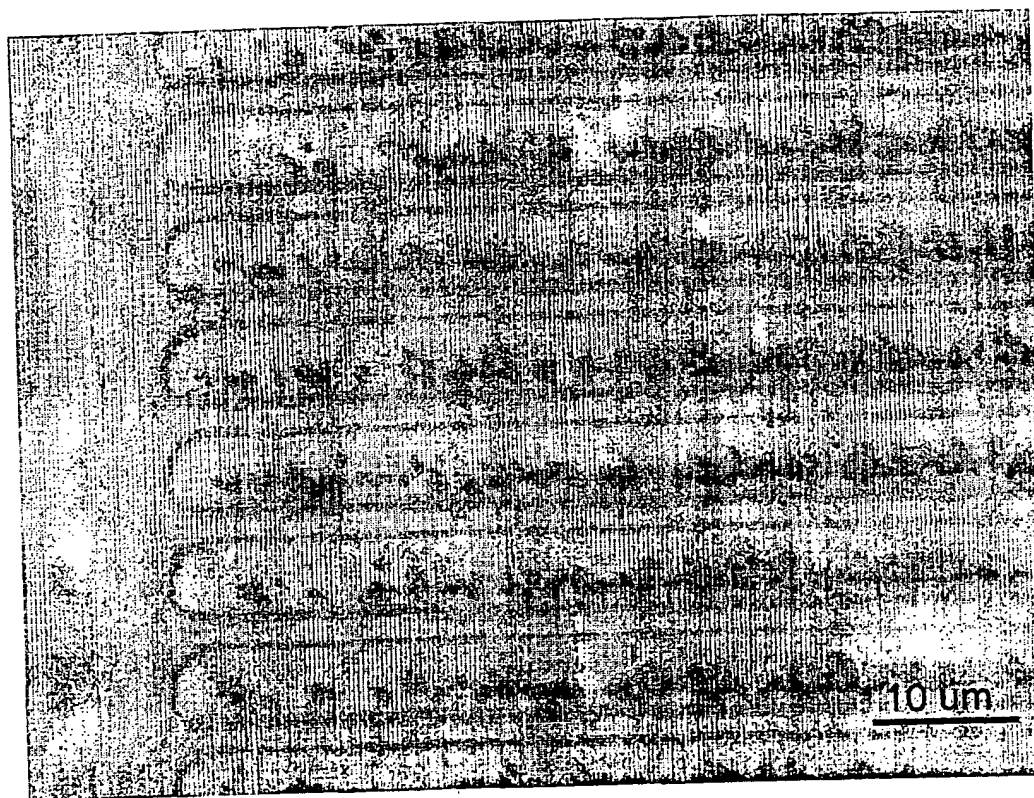 10 um